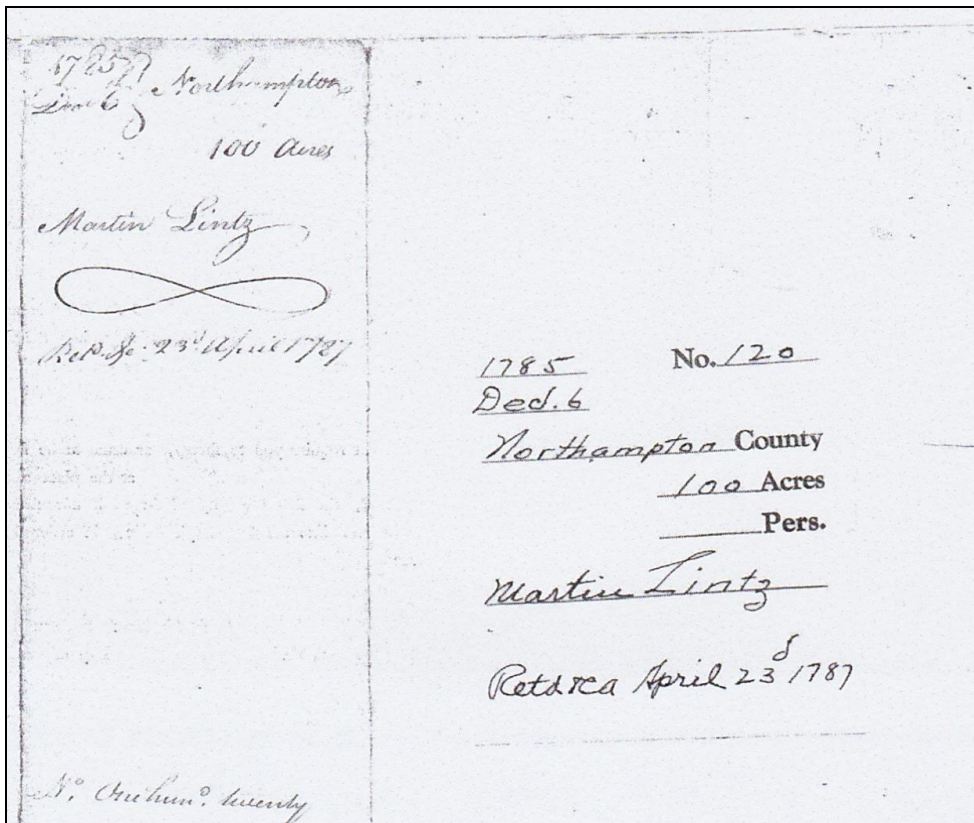 1785
Northampton
100 Acres
Martin Lintz
23d April 1787
No. Onehund. twenty
1785 No. 120
Ded. 6
Northampton County
100 Acres
Pers.
Martin Lintz
Retd &ca April 23d 1787